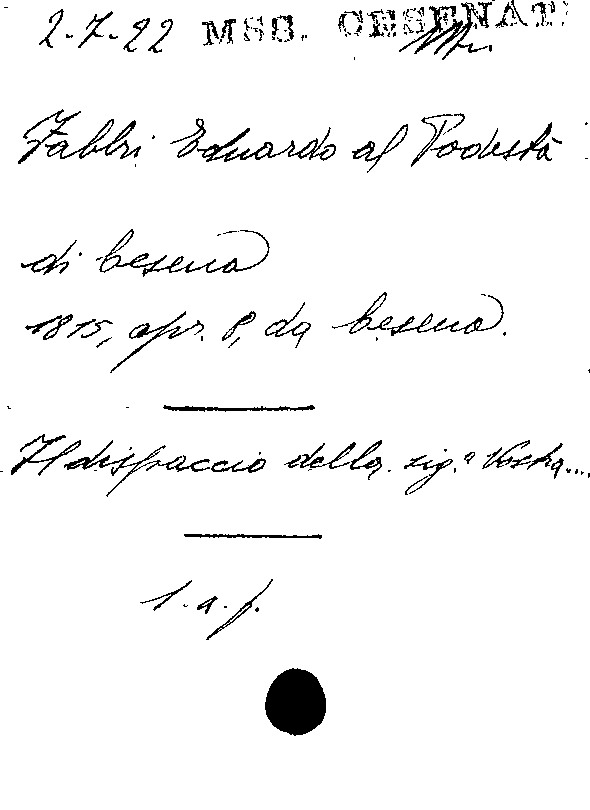 2-7-22 MSS. CESENATI
Fabbri Eduardo al Podestà
di Cesena
1815, apr. 8, da Cesena.
Il dispaccio della sig.ª Vostra....
l. a. f.